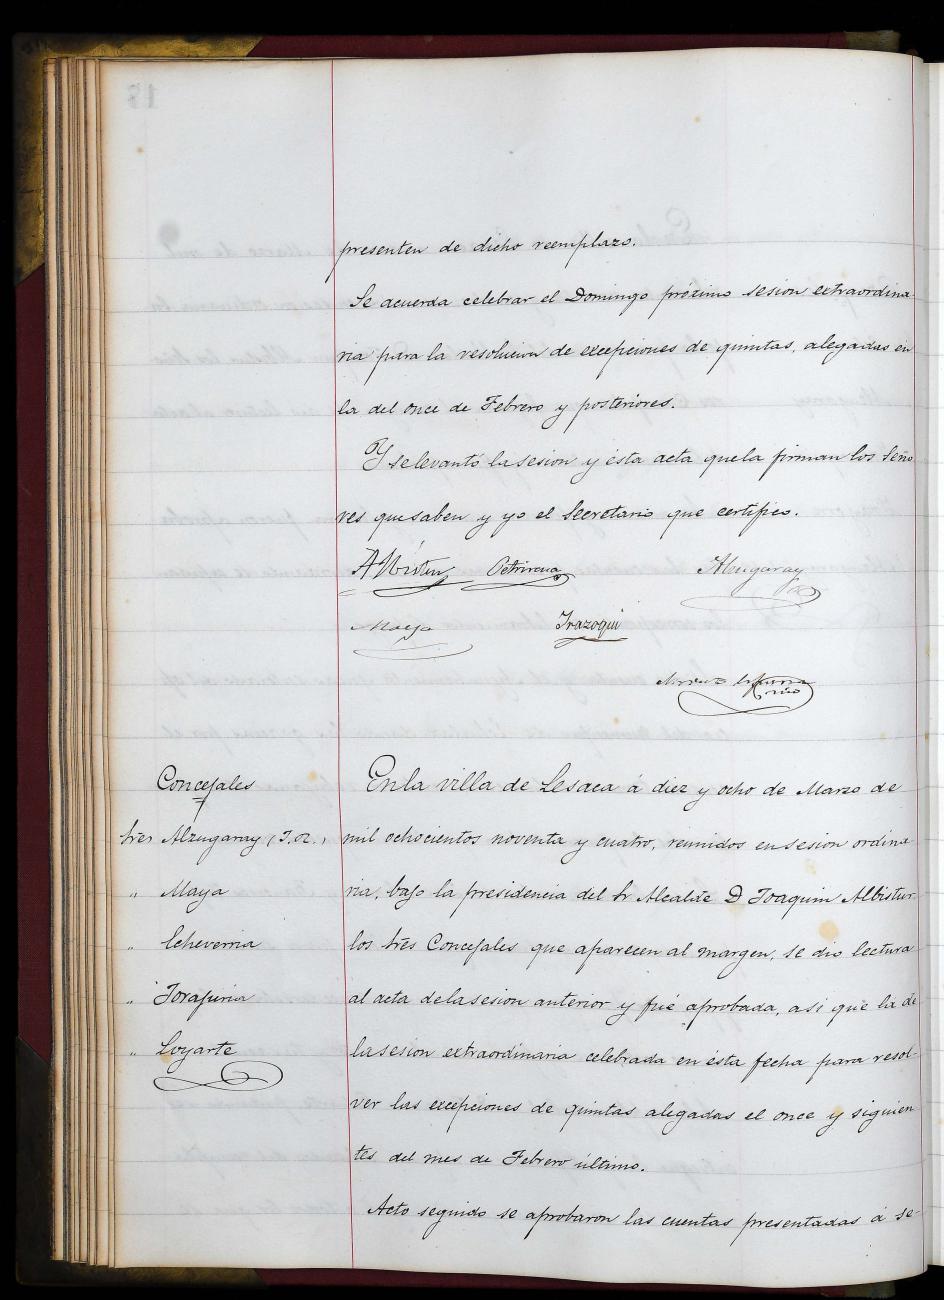 presenten de dicho reemplazo.
Se acuerda celebrar el Domingo próximo sesion extraordina
ria para la resolucion de excepciones de quintas, alegadas en
la del once de Febrero y posteriores.
Y se levantó la sesion y ésta acta que la firman los Seño
res que saben y yo el Secretario que certifico.
Albistur Petrirena Alzugaray
Maya Irazoqui
Concejales
Sres Alzugaray (J.M.)
" Maya
" Echeverria
" Loyarte
En la villa de Lesaca á diez y ocho de Marzo de
mil ochocientos noventa y cuatro, reunidos en sesion ordina
ria, bajo la presidencia del Sr Alcalde D Joaquin Albistur
los Sres Concejales que aparecen al margen, se dio lectura
al acta de la sesion anterior y fué aprobada, asi que la de
la sesion extraordinaria celebrada en ésta fecha para resol-
ver las excepciones de quintas alegadas el once y siguien
tes del mes de Febrero último.
Acto seguido se aprobaron las cuentas presentadas á se-